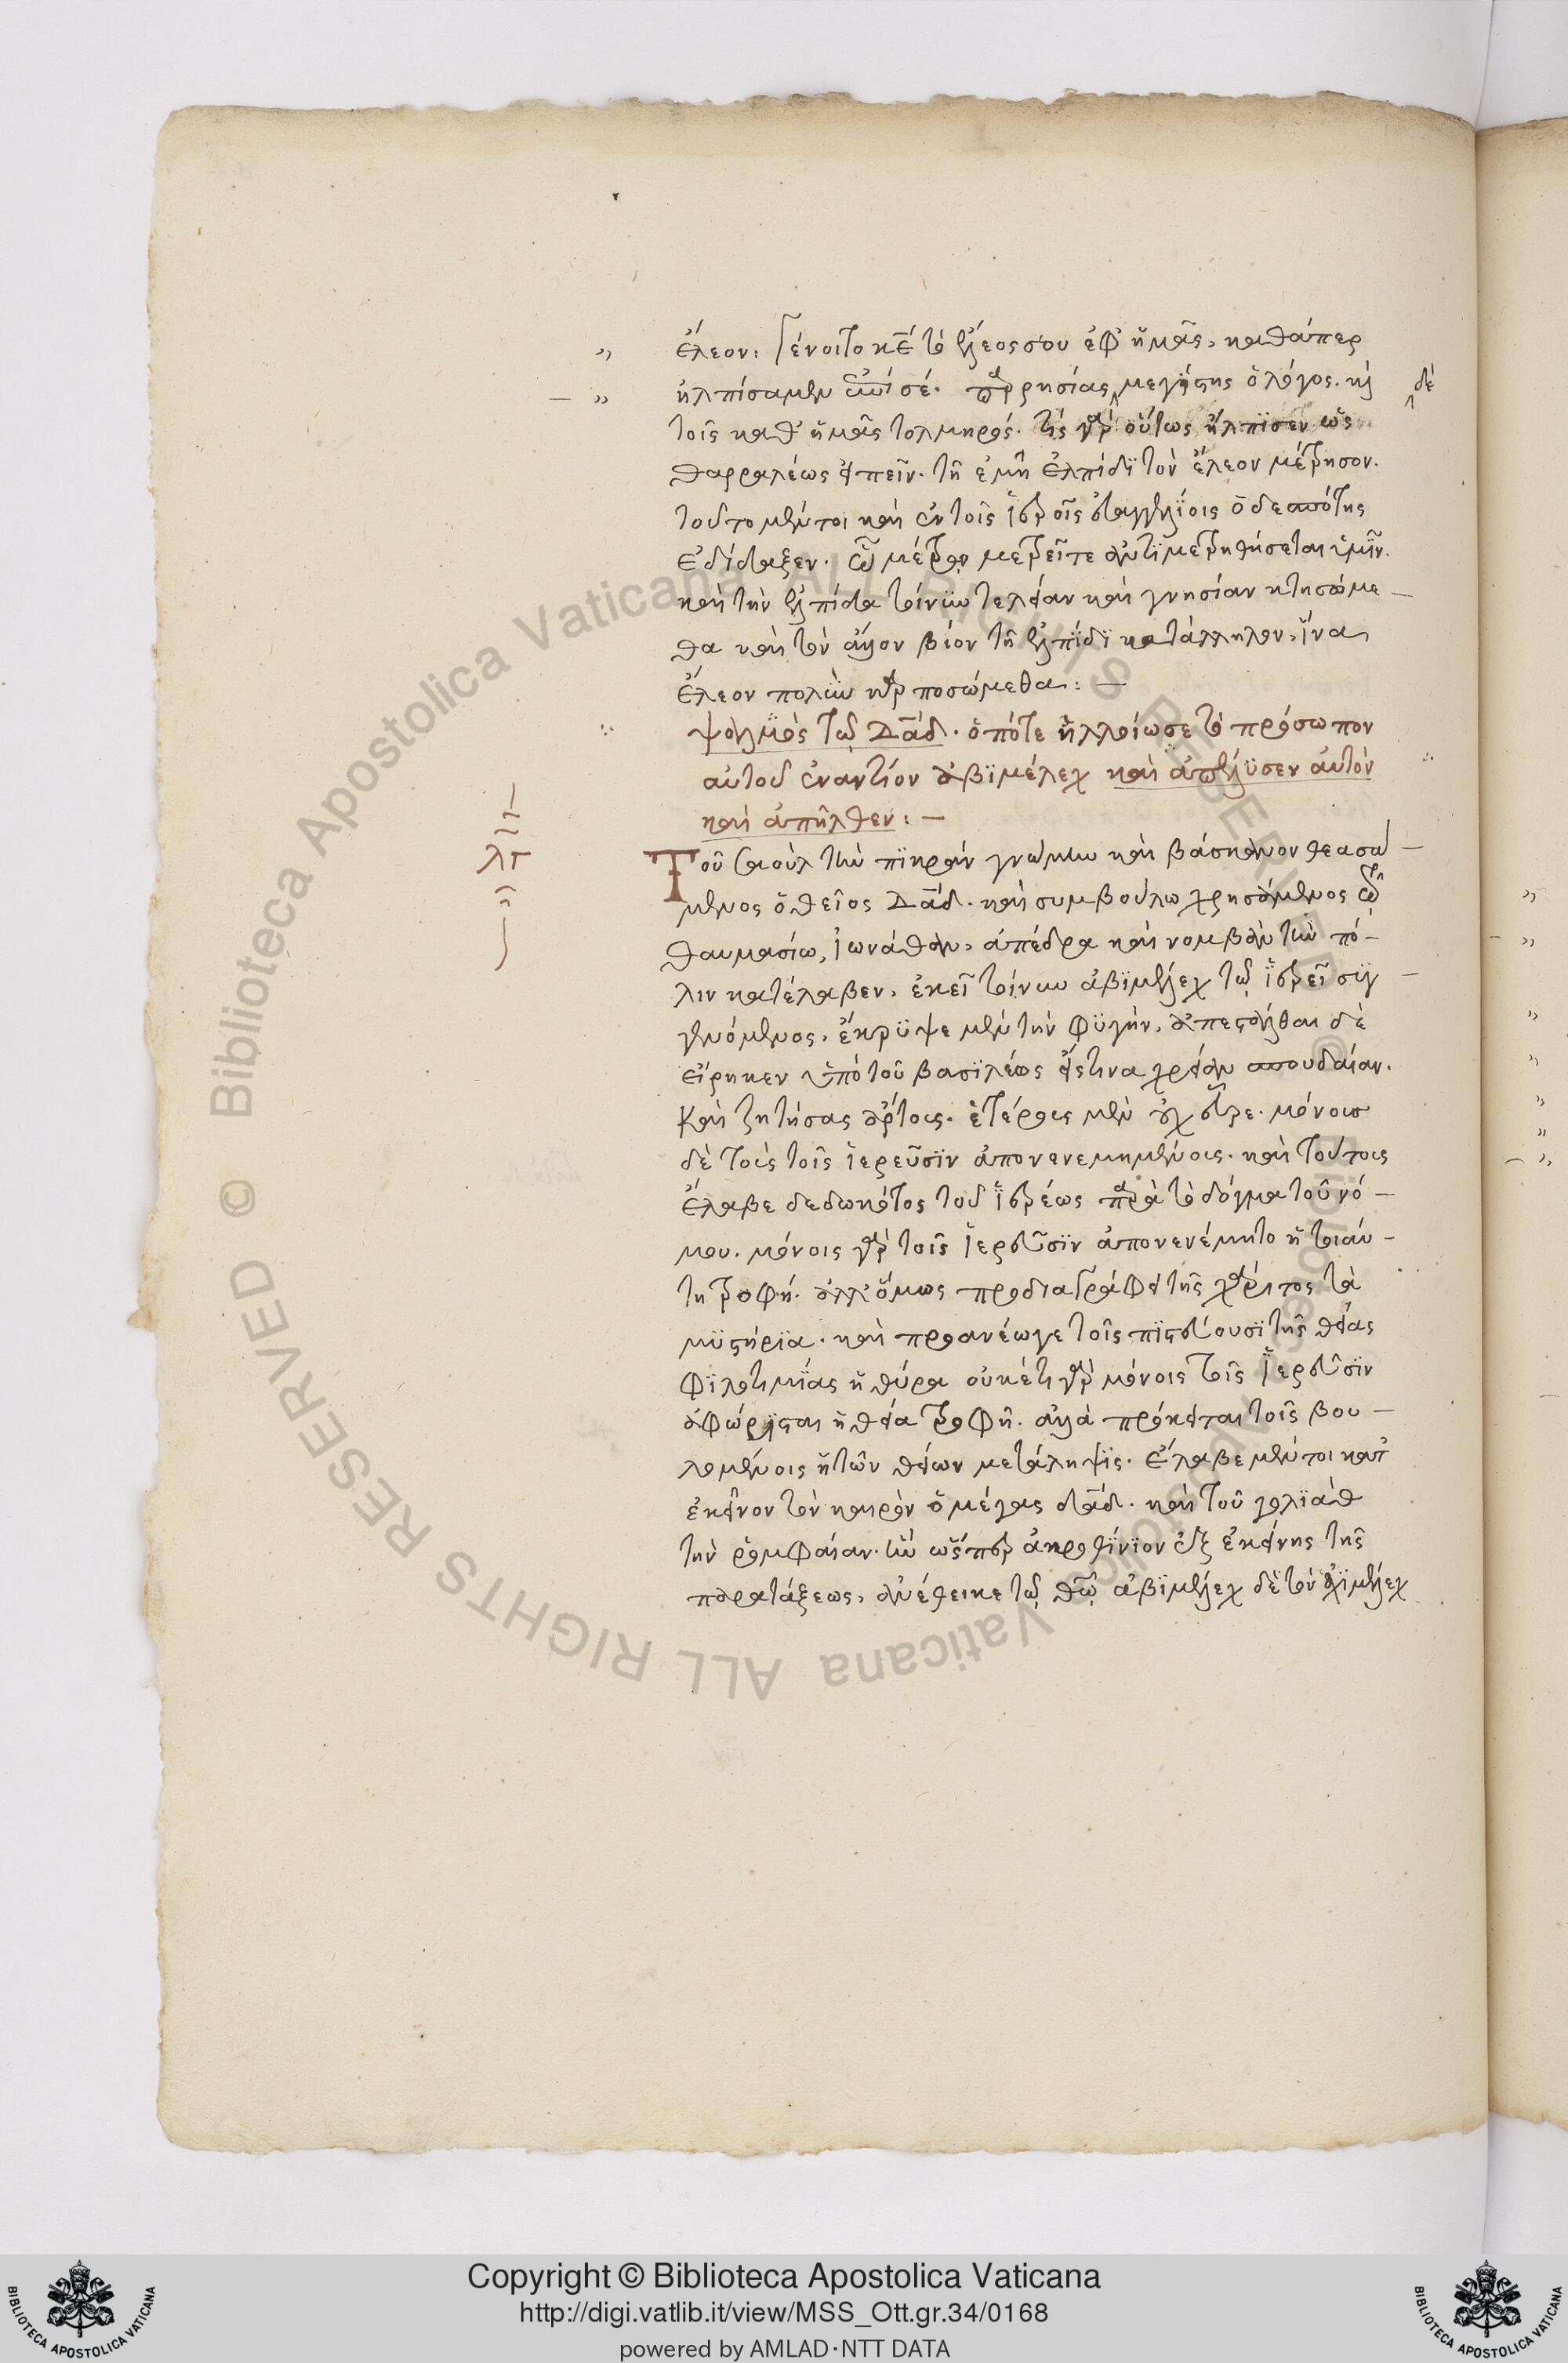 ἔλεον: Γένοιτο κε τὸ ἔλεος σου ἐφ ἡμᾶς, καθάπερ
ἠλπίσαμεν ἐπὶ σέ. παρρησίας μεγίστης ὁ λόγος. καὶ δὲ
τοῖς καθ ἡμᾶς τολμηρός. τίς γὰρ οὕτως ἤλπισεν ὡς
θαρραλέως εἰπεῖν. τῆ ἐμῆ ἐλπίδϊ τὸν ἔλεον μέτρησον.
τοῦτο μέντοι καὶ ἐν τοῖς ἱεροῖς εὐαγγελίοις ὁ δεσπότης
ἐδίδαξεν. ὧ μέτρον μετρεῖτε ἀντιμετρηθήσεται ὑμῖν.
καὶ τὴν ἐλπίδα τοίνυν τελείαν καὶ γνησίαν κτησώμε
θα καὶ τὸν ἄλλον βίον τῆ ἐλπίδϊ κατάλληλον, ἵνα
ἔλεον πολὺν καρποσώμεθα: –
ψαλμὸς τῷ Δαδ. ὁπότε ἠλλοίωσε τὸ πρόσωπον
αὐτοῦ ἐναντίον ἀβϊμέλεχ καὶ ἀπέλϋσεν αὐτὸν
καὶ ἀπῆλθεν: –
λγ
Τοῦ σαοὺλ τὴν πϊκρὰν γνώμην καὶ βάσκανον θεασα
μενος ὁ θεῖος Δαδ. καὶ συμβούλω χρησάμενος τῷ
θαυμασίω, ἰωνάθαν, ἀπέδρα καὶ νομβὰν τὴν πό–
λιν κατέλαβεν, ἐκεῖ τοίνυν ἀβϊμέλεχ τῷ ἱερεῖ συγ
γενόμενος, ἔκρϋψε μὲν τὴν φϋγὴν, ἀπεστάλθαι δὲ
εἴρηκεν ὑπὸ τοῦ βασϊλέως εἴς τινα χρείαν σπουδαίαν.
Καὶ ζητήσας ἄρτους. ἑτέρους μὲν οὐχ εὗρε. μόνους
δὲ τοὺς τοῖς ἱερεῦσϊν ἀπονενεμημένους. καὶ τούτους
ἔλαβε δεδωκότος τοῦ ἱερέως παρὰ τὸ δόγμα τοῦ νό–
μου. μόνοις γὰρ τοῖς ἱερεῦσϊν ἀπονενέμητο ἡ τοιαύ–
τη τροφή. ἀλλ' ὅμως προδιαγράφει τῆς χάριτος τὰ
μϋστήρϊα. καὶ προανέωγε τοῖς πϊστεύουσϊ τῆς θείας
φϊλοτιμΐας ἡ θύρα οὐκέτι γὰρ μόνοις τοῖς ἱερεῦσϊν
ἀφώρισται ἡ θεία τροφή. ἀλλὰ πρόκειται τοῖς βου–
λομένοις ἡ τῶν θείων μετάληψϊς. Ἔλαβε μέντοι κατ'
ἐκεῖνον τὸν καιρὸν ὁ μέγας δαδ. καὶ τοῦ γολϊὰθ
τὴν ῥομφαίαν. ἣν ὥσπερ ἀκροθίνϊον ἐξ ἐκείνης τῆς
παρατάξεως, ἀνέθεικε τῷ θῷ ἀβϊμέλεχ δὲ τὸν ἀχϊμέλεχ
Copyright © Biblioteca Apostolica Vaticana
http://digi.vatlib.it/view/MSS_Ott.gr.34/0168
powered by AMLAD·NTT DATA